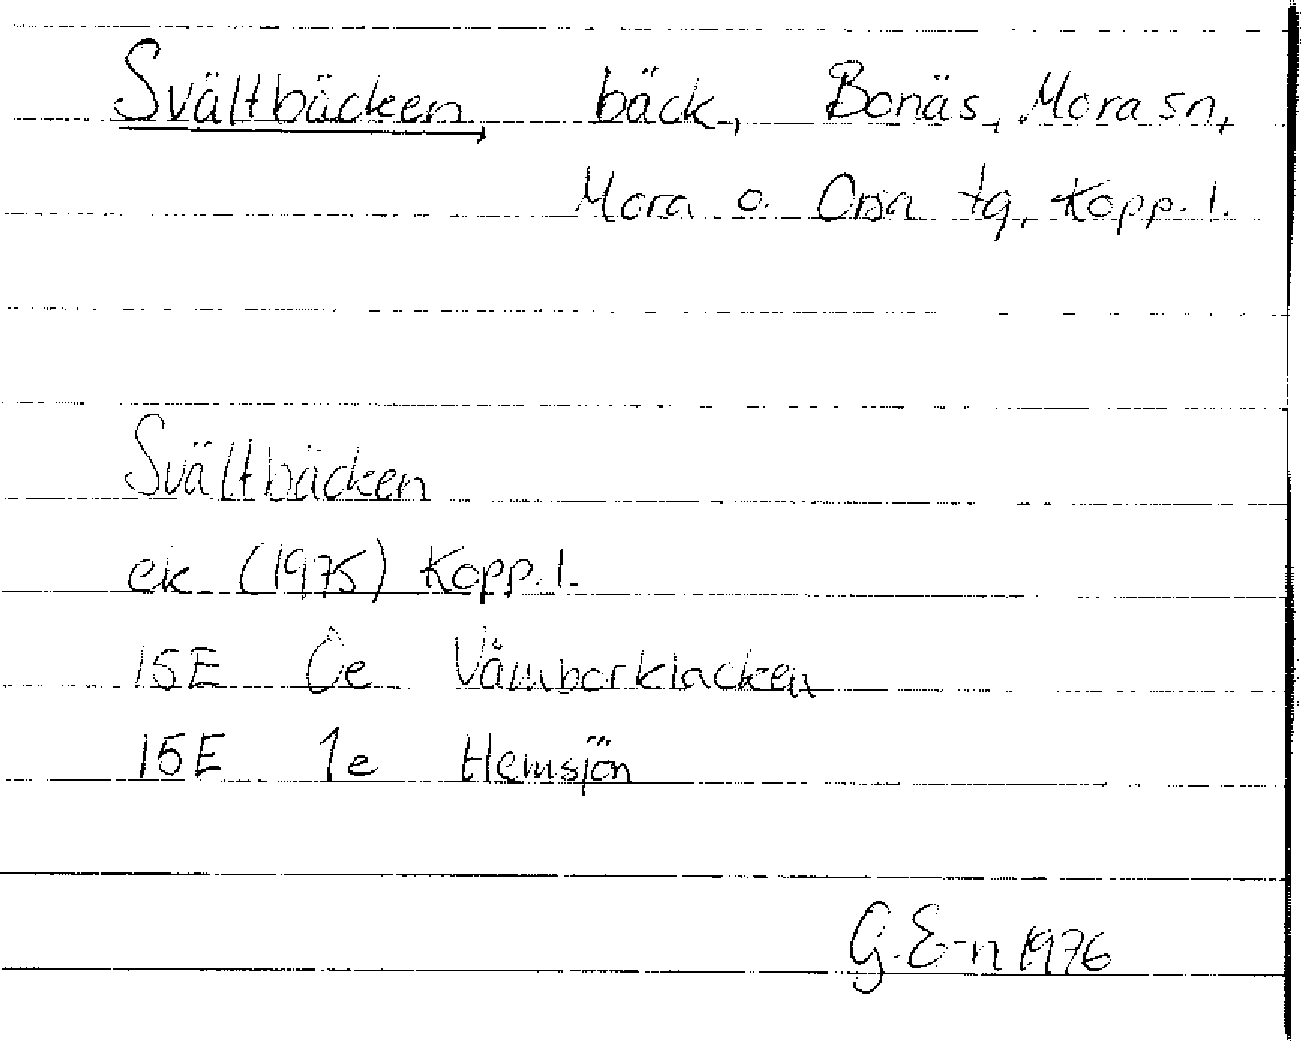 Svältbäcken, bäck, Bonäs, Mora sn,
Mora o. Orsa tg, Kopp. l.
Svältbäcken
ek (1975) Kopp. l.
15E 0e Våmborklacken
15E 1e Hemsjön
G. E-n 1976